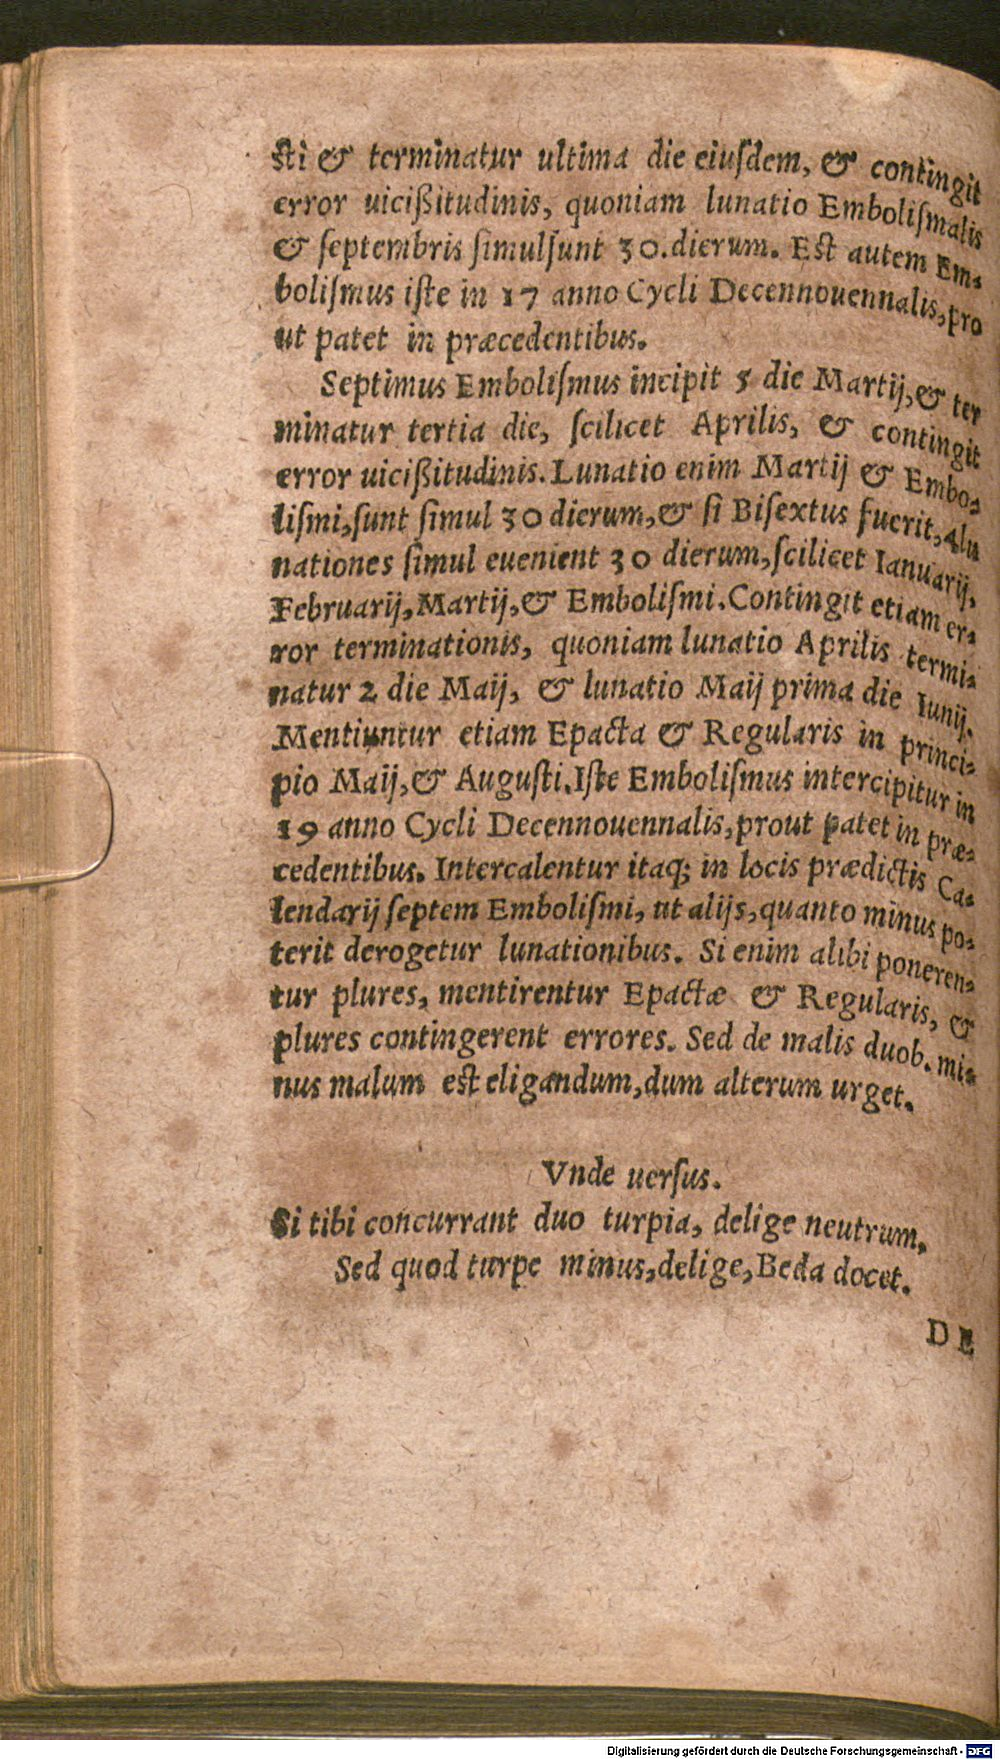 sti & terminatur ultima die eiuſdem, & contingit
error uicißitudinis, quoniam lunatio Emboliſmalis
& ſeptembris ſimulſunt 30. dierum. Est autem Em-
boliſmus iſte in 17 anno Cycli Decennouennalis, pro
ut patet in præcedentibus.
Septimus Emboliſmus incipit 5 die Martij, & ter
minatur tertia die, ſcilicet Aprilis, & contingit
error uicißitudinis. Lunatio enim Martij & Embo-
liſmi, ſunt ſimul 30 dierum, & ſi Biſextus fuerit, 4 lu
nationes ſimul euenient 30 dierum, ſcilicet Ianuarij,
Februarij, Martij, & Emboliſmi. Contingit etiam er-
ror terminationis, quoniam lunatio Aprilis termi-
natur 2 die Maij, & lunatio Maij prima die Iunij.
Mentiuntur etiam Epacta & Regularis in princi-
pio Maij, & Auguſti. Iſte Emboliſmus intercipitur in
19 anno Cycli Decennouennalis, prout patet in præ-
cedentibus. Intercalentur itaq; in locis prædictis Ca-
lendarij ſeptem Emboliſmi, ut alijs, quanto minus po-
terit derogetur lunationibus. Si enim alibi poneren-
tur plures, mentirentur Epactæ & Regularis, &
plures contingerent errores. Sed de malis duob. mi-
nus malum est eligandum, dum alterum urget.
Vnde uerſus.
Si tibi concurrant duo turpia, delige neutrum,
Sed quod turpe minus, delige, Beda docet.
DE
Digitalisierung gefördert durch die Deutsche Forschungsgemeinschaft - DFG